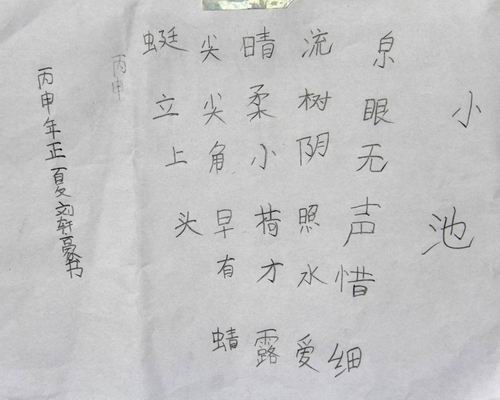 小池
泉眼无声惜细
流树阴照水爱
晴柔小荷才露
尖尖角早有蜻
蜓立上头
丙申
丙申年正夏刘轩豪书